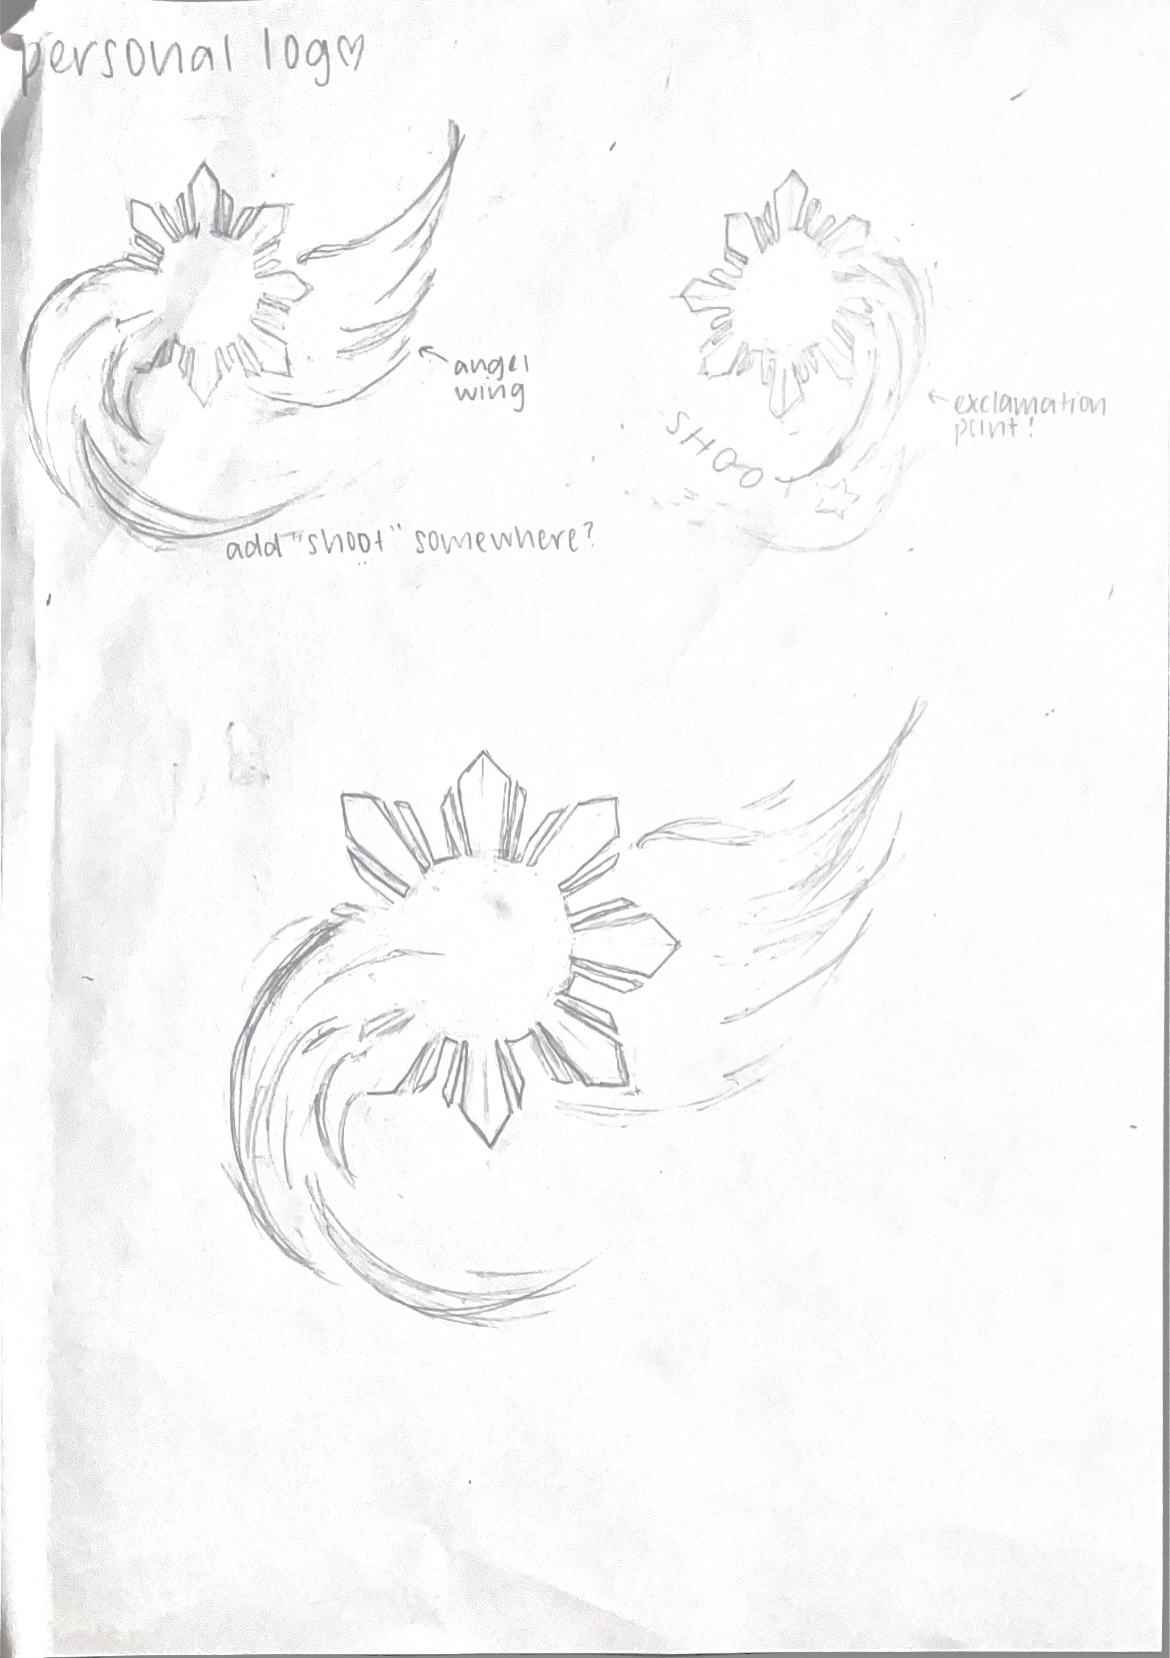 personal log♡
angel
wing
add "shoot" somewhere?
SHOO
exclamation
point!